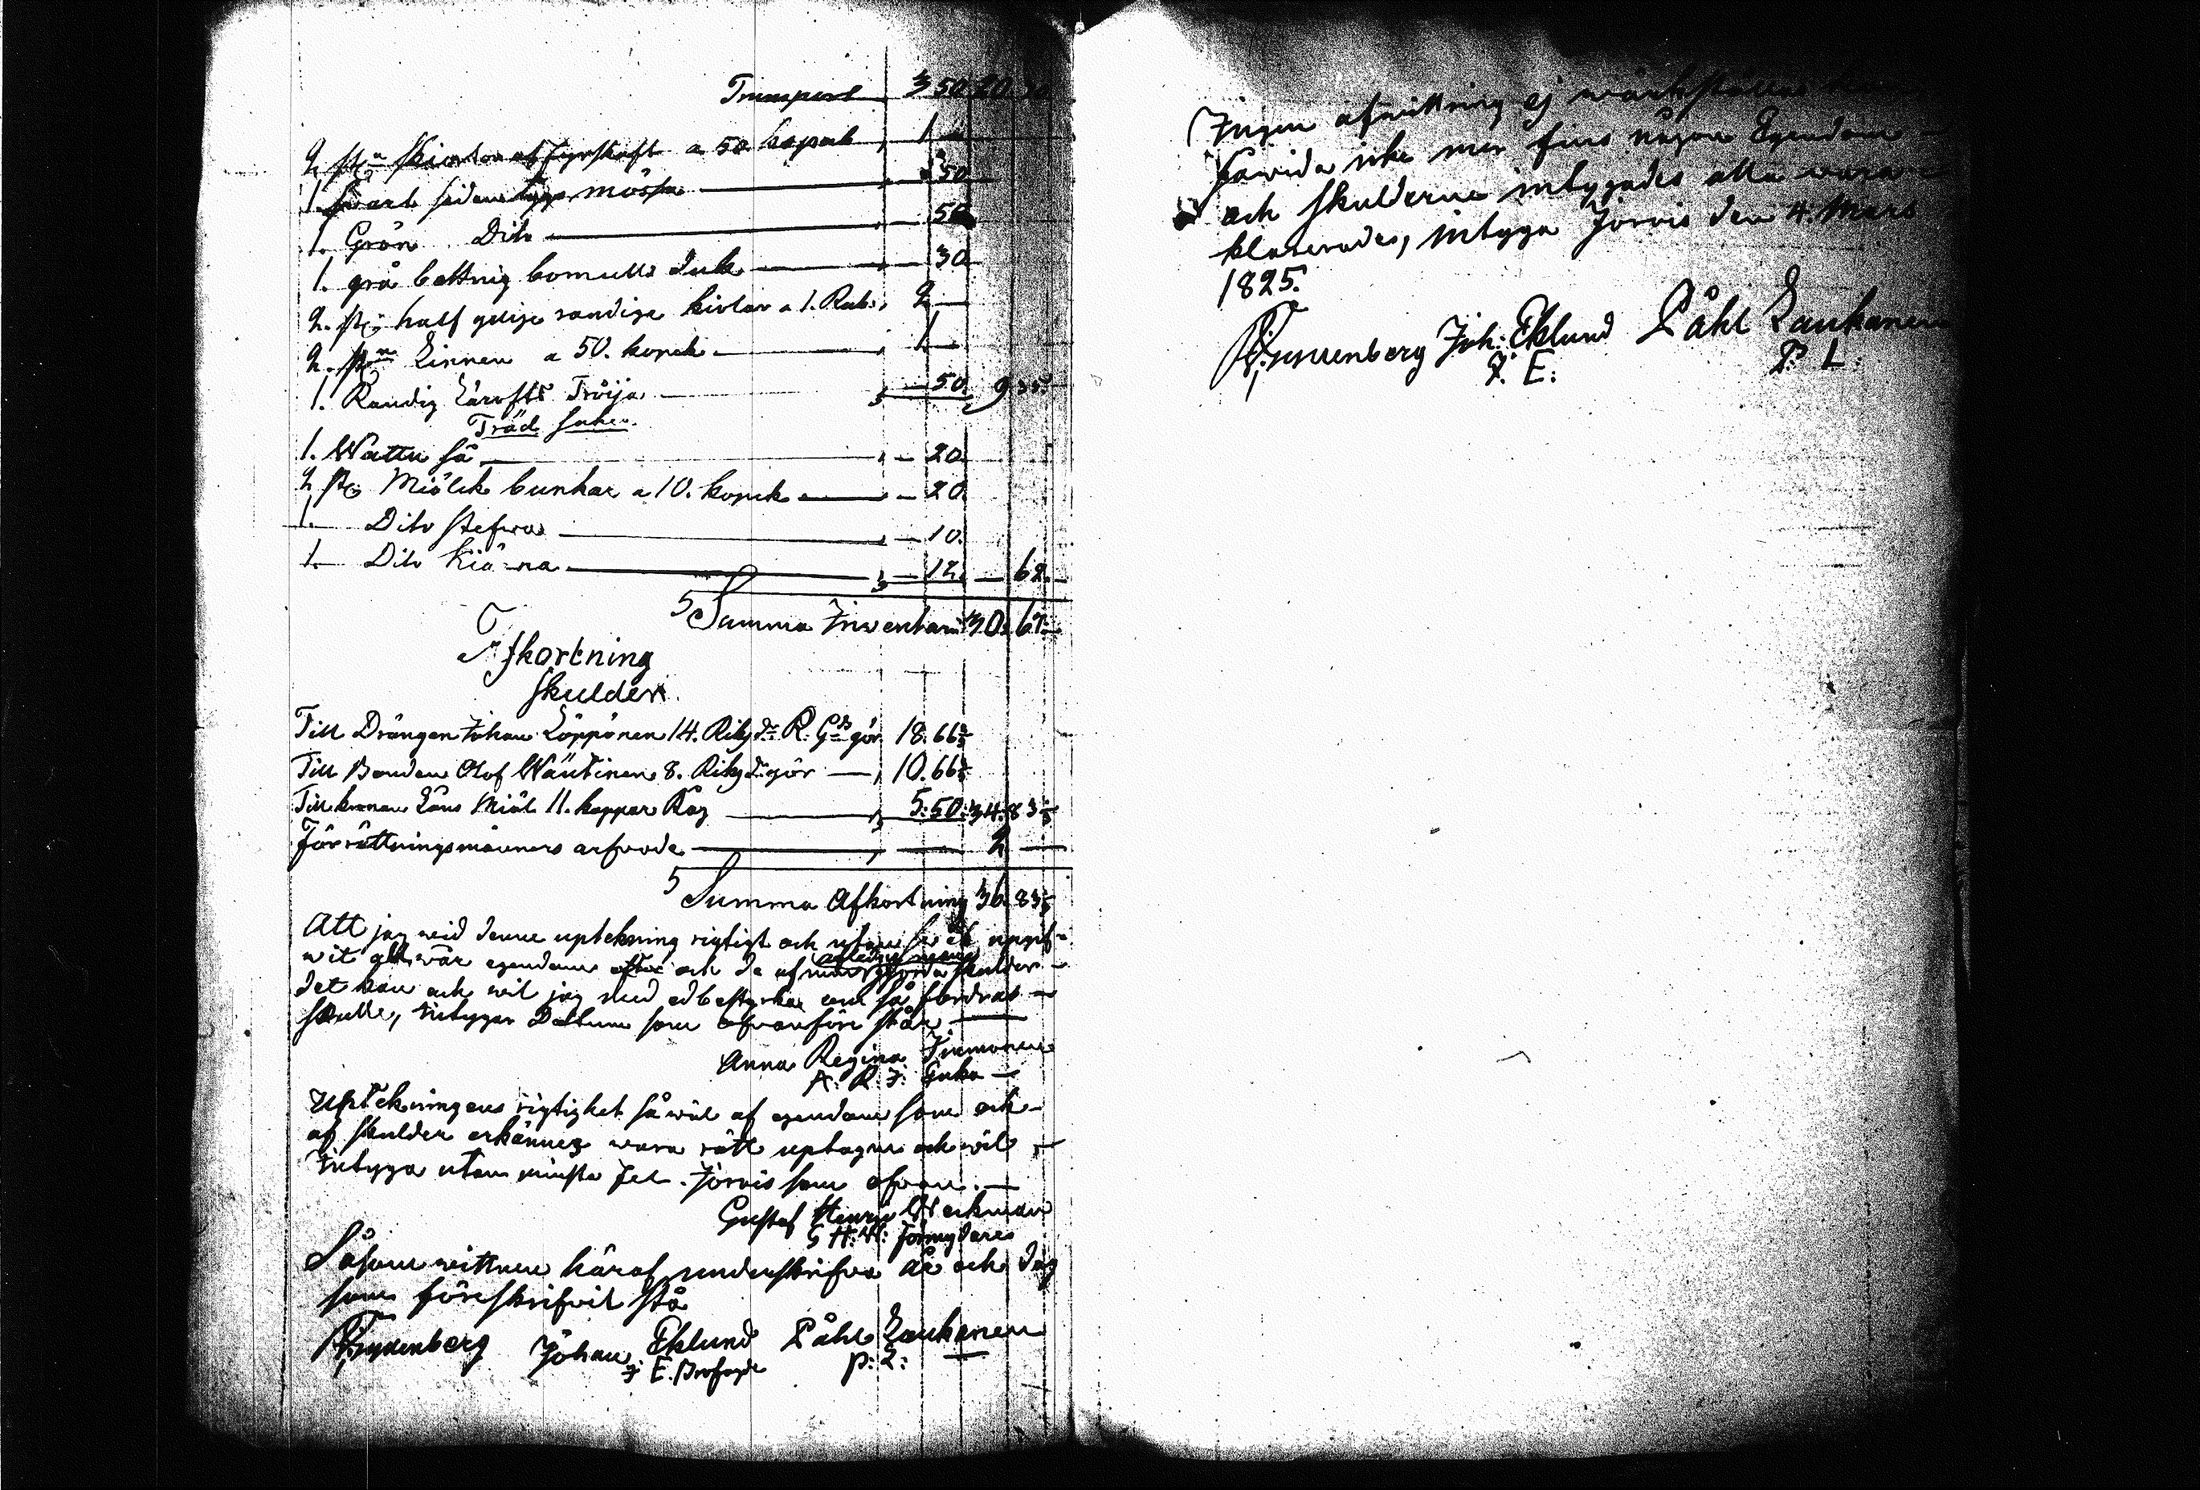 Transport 3 50 20 70
2 st:n skiortor af fyrskaft a 50 kopek 1 —
1 svart siden tygs mössa — 2 50
1. Grön Dito — 50
1. grå bettnig bomulls duk — 30
2. st: half gylige randige kiolar a 1. Rub: 2 —
2. st:n Linnen a 50. kopek — 1 —
1. Randig Lärofts Tröija — 50. 9 35
Träd saker.
1. Wattu så — 20.
2 st: Miölck bunkar a 10. kopek — 20.
1. Dito stefwa — 10.
1. Dito kiärna — 12. — 62.
S Summa Inventarii 30. 67
Afkortning
skulder.
Till Drängen Johan Löppönen 14. Riksdr R. Gs gör 18. 66 2/3
Till Bonden Olof Wäutinen 8. Riksdr gör — 10. 66 2/3
Till kronan Låns Miöl 11. kappar Råg — 5. 50. 34. 83 1/3
Förrättningsmäners arfvode — 2 —
S Summa Afkortning 36. 83 1/3
Att jag wid denne uptekning rigtigt och utan swek uppf-
wit all wår egendom och de af gjorda skulder
det kan och wil jag med ed bestyrka om så fordras
skulle, intygar Datum som ofvanföre står.
Anna Regina Immonen
A. R. I. Enka
Uptekningens rigtighet så wäl af egendom som och
af skulder erkännes wara rätt uptagne och wil
intyga utan minsta fel. Jorois som ofvan.
Gustaf Henric Weckman
G H: W: förmyndare
Såsom wittnen häraf underskrifva år och dag
som föreskrifvit stå
Johan Eklund Påhl Laukanen
J. E. P: L:
Ingen afwittring ej wärkställas
såvida icke mer fins någon Egendom
och skulderne intygades alla vara
klarerades, intyga Jorois den 4. Mars
1825.
Joh: Eklund Påhl Laukanen
J. E: P. L: